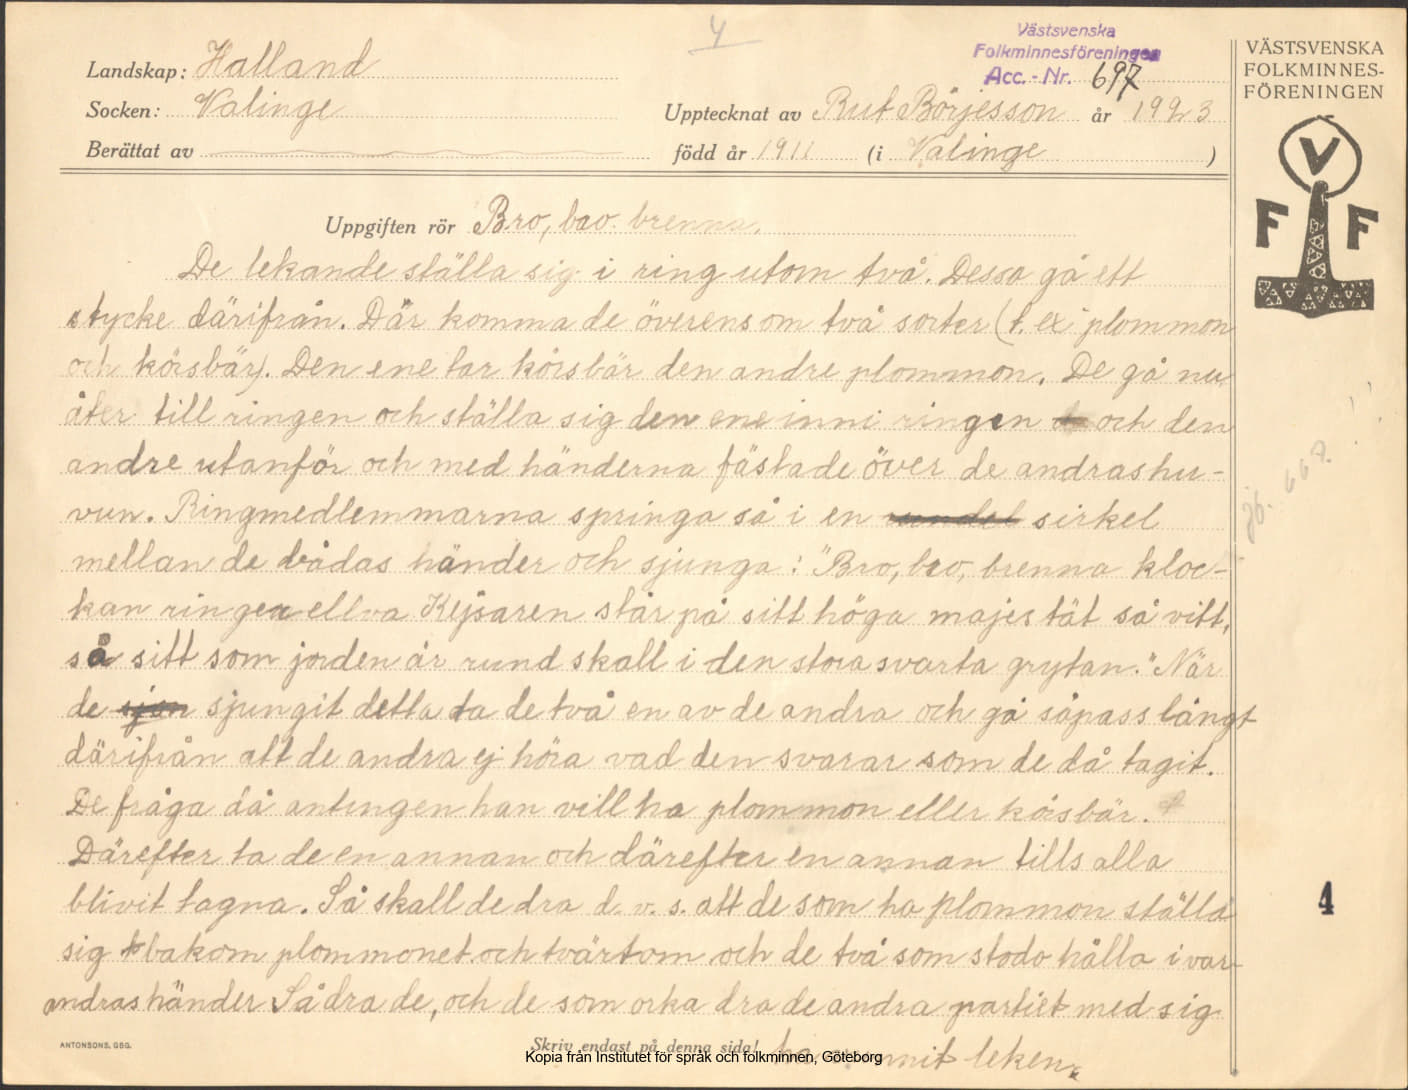 4
Västsvenska
Folkminnesföreningen
Acc. - Nr. 697
Landskap: Halland
Socken: Valinge
Upptecknat av Rut Börjesson år 1923
Berättat av
född år 1911 (i Valinge )
VÄSTSVENSKA
FOLKMINNES-
FÖRENINGEN
V
F F
Uppgiften rör Bro, bro brenna.
De lekande ställa sig i ring utom två. Dessa gå ett
stycke därifrån. Där komma de överens om två sorter (t. ex plommon
och körsbär). Den ene tar körsbär den andre plommon. De gå nu
åter till ringen och ställa sig den ene inni ringen och den
andre utanför och med händerna fästade över de andras hu-
vun. Ringmedlemmarna springa så i en sirkel
mellan de bådas händer och sjunga: "Bro, bro, brenna kloc-
kan ringer ellva Kejsaren står på sitt höga majestät så vitt,
så sitt som jorden är rund skall i den stora svarta grytan." När
de sjungit detta ta de två en av de andra och gå såpass långt
därifrån att de andra ej höra vad den svarar som de då tagit.
De fråga då antingen han vill ha plommon eller körsbär.
Därefter ta de en annan och därefter en annan tills alla
blivit tagna. Så skall de dra d. v. s. att de som ha plommon ställa
sig bakom plommonet och tvärtom och de två som stodo hålla i var-
andras händer Så dra de, och de som orka dra de andra partiet med sig
ha vunnit leken.
4
ANTONSONS, GBG.
Skriv endast på denna sida!
Kopia från Institutet för språk och folkminnen, Göteborg